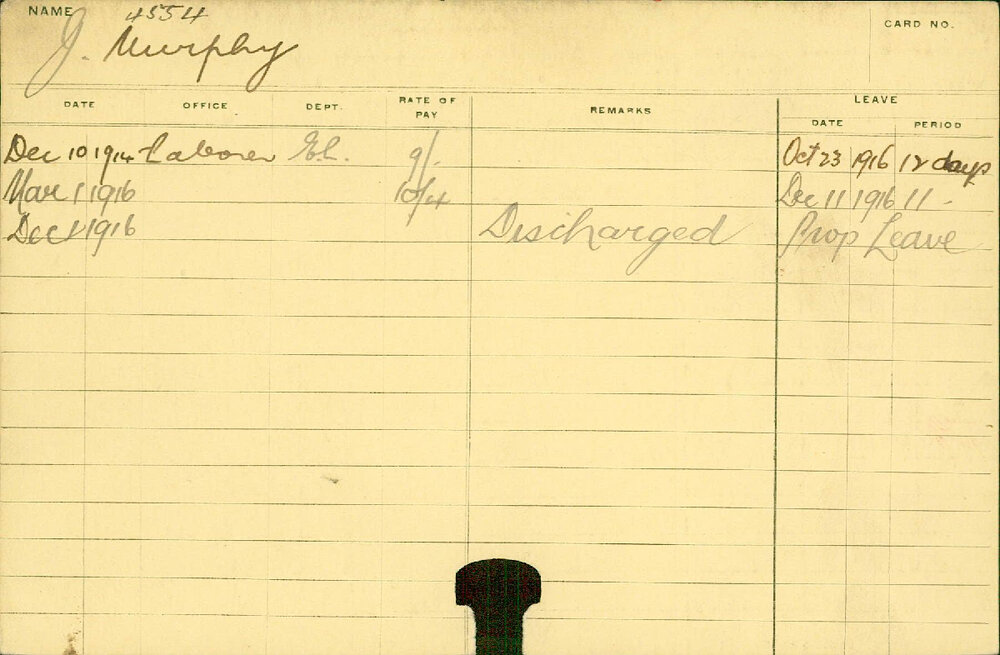 NAME 4554 CARD NO.
J. Murphy
DATE OFFICE DEPT. RATE OF PAY REMARKS LEAVE
DATE PERIOD
Dec 10 1914 Laborer El. 9/- Oct 23 1916 12 days
Mar 1 1916 10/4 Dec 11 1916 11 -
Dec 1916 Discharged Prop Leave